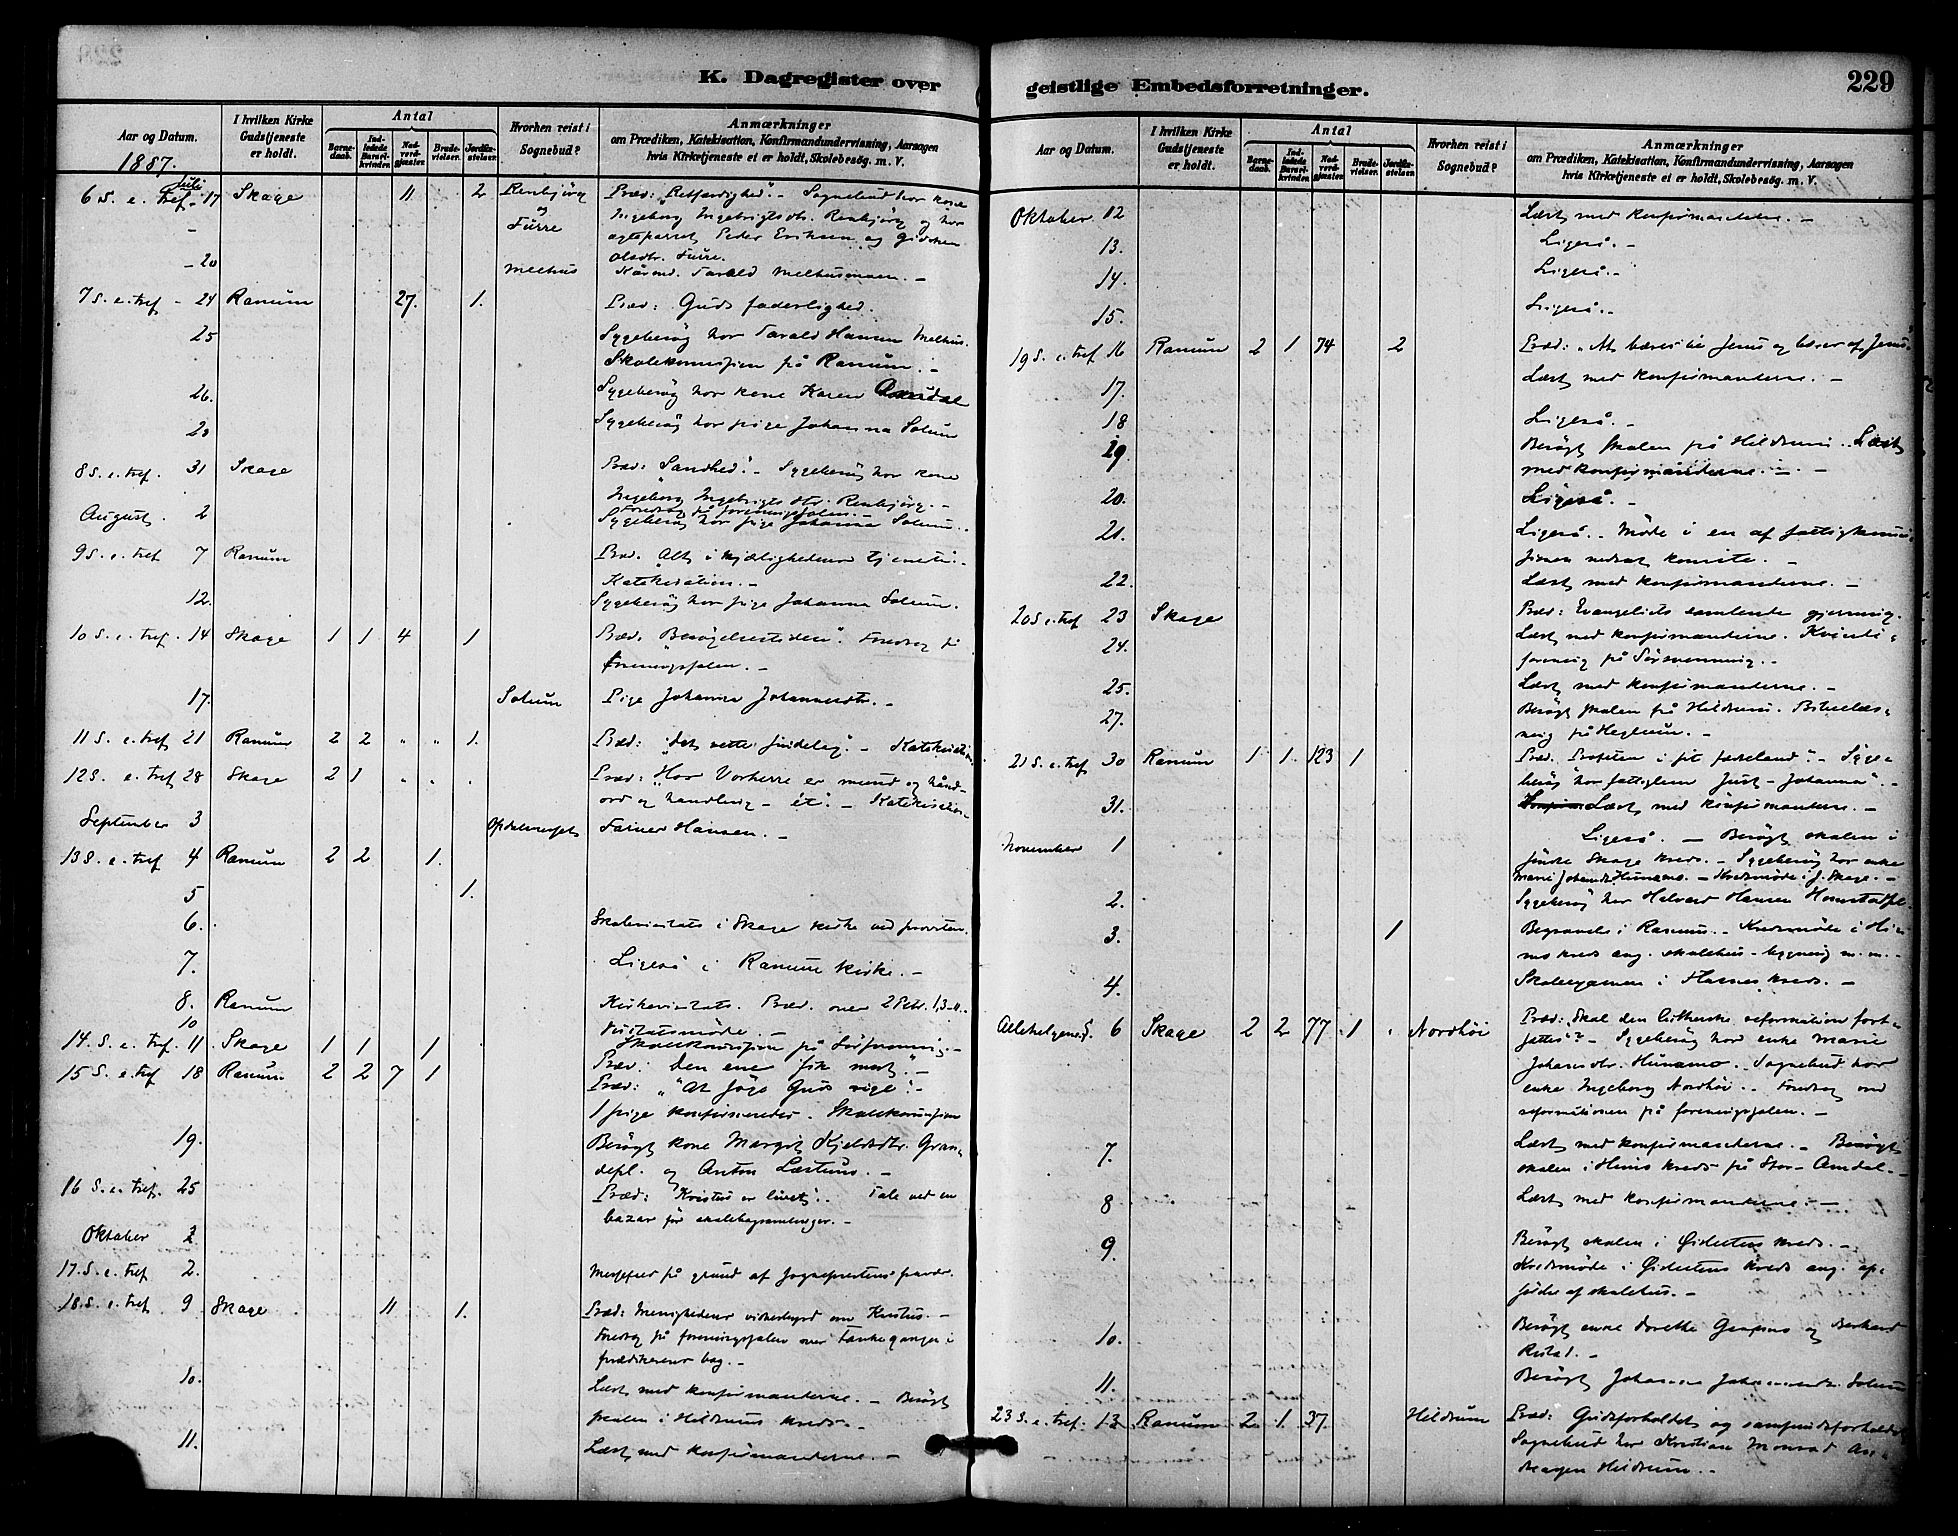 K. Dagregister over
Aar og Datum.
1887.
I hvilken Kirke Gudstjeneste er holdt.
Antal
Barnedaab.
Indledede Barselkvinder.
Nadverdgjæster.
Brudevielser.
Jordfæstelser.
Hvorhen reist i Sognebud?
Anmærkninger
om Prædiken, Katekisation, Konfirmandundervisning, Aarsagen
hvis Kirketjeneste et er holdt, Skolebesøg. m. V.
6 S. e. Tref. Juli 17 Skage 11 2 Renbjörg og Furre Præd: "Retfærdighed". - Sognebud hos kone
Ingeborg Ingebrigtsdtr. Renbjörg og hos
ægteparret Peder Eriksen og
Olsdtr. Furre.
- 20 Melhus Tarald Melhusmoen. -
7 S. e. tref - 24 Ranum 27. 1. Præd: Guds faderlighed.
25 Sygebesög hos Tarald Hansen Melhus.
Skolekomission på Ranum. -
26. Sygebesög hos kone Karen
Sygebesög hos pige Johanna Solum
8 S. e. tref. 31 Skage Præd: "Sandhed". - Sygebesög hos kone
Ingeborg Ingebrigtsdtr. Renbjörg. -
Foredrag på foreningssalen. -
August 2 Sygebesög hos pige Johanna Solum.
9 S. e. tref 7 Ranum Præd. "Alt i kjærlighedens tjeneste". -
Katekisation. -
12. Sygebesög hos pige Johanna Solum.
10 S. e. tref. 14 Skage 1 1 4 1 Præd. "Besögelsestiden". Foredrag på
foreningssalen. -
17. Solum Pige Johanna Johannesdtr. -
11 S. e. tref 21 Ranum 2 2 " " 1. Præd: "det rette sindelag". - Katekisation.
12 S. e. tref 28 Skage 2 1 " " Præd: "Hos Vorherre er mund og hånd -
ord og handling - ét". - Katekisation -
September 3 Farmer Hansen. -
13 S. e. tref 4 Ranum 2 2 1.
5 1.
6. Skolevisitats i Skage kirke ved provsten.
7. Ligeså i Ranum kirke. -
8. Ranum Kirkevisitats. Præd. over 2 Petr. 1, 3-11.
Visitatsmöde. -
10 Skolekomission på
14. S. e. tref. 11 Skage 1 1 1 Præd: "den ene fik mod". -
15 S. e. tref 18 Ranum 2 2 7 1 Præd: "At söge Guds rige". -
1 pige konfirmeredes. Skolekomission
19. Besögt kone Margit
og Anton -
16 S. e. tref. 25 Præd: "Kristus er livet". Tale ved en
bazar for
Oktober 2
17. S. e. tref 2. Messefald på grund af sognepræstens
18. S. e. tref 9 Skage 11 1. Præd: Menighedens vidnesbyrd om Kristus. -
Foredrag på foreningssalen over tankegangen i
prædikerens bog. -
10. Læst med konfirmanterne. - Besögt
skolen i Hildrums kreds. -
11. Læst med konfirmanterne. -
geistlige Embedsforretninger.
229
Aar og Datum.
I hvilken Kirke Gudstjeneste er holdt.
Antal
Barnedaab.
Indledede Barselkvinder.
Nadverdgjæster.
Brudevielser.
Jordfæstelser.
Hvorhen reist i Sognebud?
Anmærkninger
om Prædiken, Katekisation, Konfirmandundervisning, Aarsagen
hvis Kirketjeneste et er holdt, Skolebesøg. m. V.
Oktober 12 Læst med konfirmanterne. -
13. Ligeså. -
14. Ligeså. -
15. Ligeså. -
19 S. e. tref 16 Ranum 2 1 74 2 Præd: "At bæres til Jesus og bæres af Jesus"
17. Læst med konfirmanterne. -
18 Ligeså. -
19. Besögt skolen på Hildrum. Læst
med konfirmanterne. -
20. Ligeså. -
21. Ligeså. - Möde i en af fattigkommis-
sionen nedsat komite. -
22. Læst med konfirmanterne. -
20 S. e. tref 23 Skage Præd: Evangeliets samlende gjerning.
24. Læst med konfirmanterne. Kvinde-
forening på -
25. Læst med konfirmanterne. -
27. Besögt skolen på Hildrum. Bibellæs-
ning på -
21 S. e. tref 30 Ranum 1 1. 123 1 Præd. "Profeten i sit fædreland". - Syge-
besög hos fattiglem "Just-Johanna". -
31. Læst med konfirmanterne. -
November 1 Ligeså. - Besögt skolen i
söndre Skage kreds. - Sygebesög hos enke
Marie Johansdtr. - Kredsmöde i s. Skage. -
2. Sygebesög hos Halvard Hansen
3. 1 Begravelse i Ranum. - Kredsmöde i
kreds ang. skolehus-bygning m. m. -
4. Skoleexamen i kreds. -
Allehelgens S. 6 Skage 2 2 77 1 " Nordhöi Præd: "Skal den lutherske reformation fort-
sættes"? - Sygebesög hos enke Marie
Johansdtr. Sognebud hos
enke Ingeborg Nordhöi. - Foredrag om
reformationen på foreningssalen. -
7. Læst med konfirmanterne. - Besögt
skolen i kreds på -
8 Læst med konfirmanterne. -
9. Besögt skolen i kreds. -
Kredsmöde i kreds ang. op-
förelse af skolehus. -
10. Besögt enke Dorethe og
11. Besögt Johanna Johannesdtr. Solum
23 S. e. tref. 13 Ranum 2 1. 37. Hildrum Præd: Gudsforholdet og samfundsforholdet
Sognebud hos Kristian
Hildrum. -